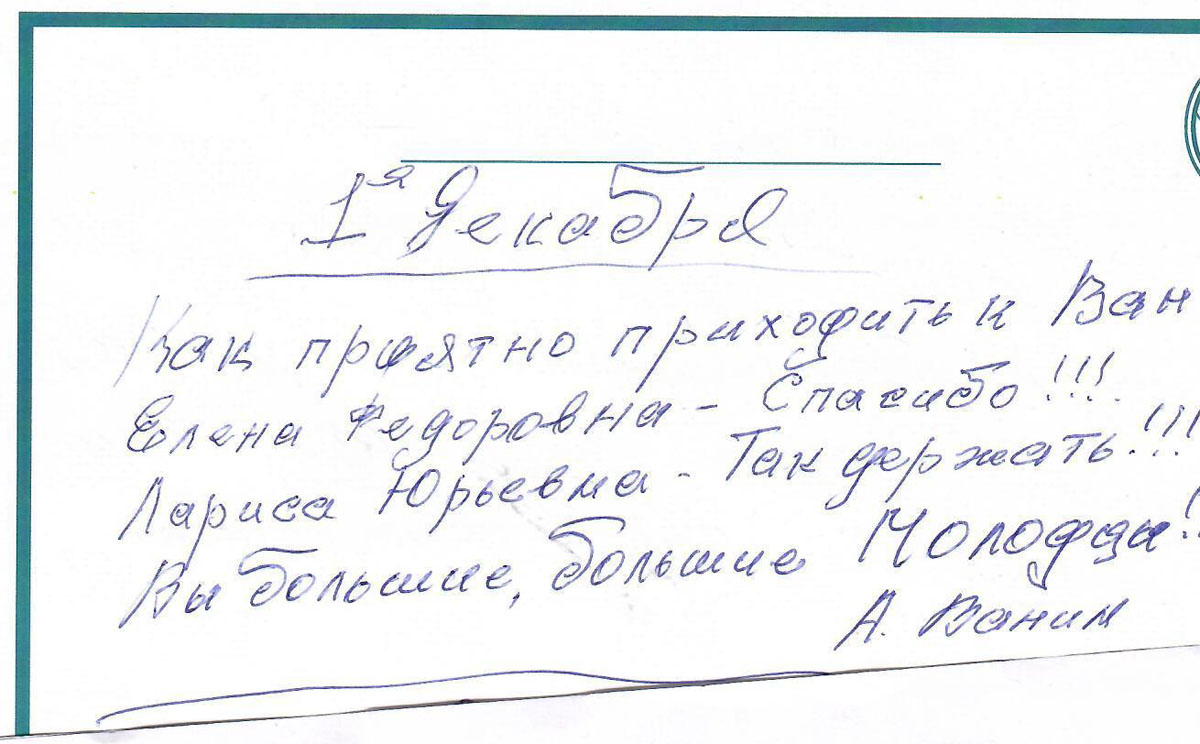 1я Декабря
Как приятно приходить к Вам
Елена Федоровна - Спасибо!!!
Лариса Юрьевна - Так держать!!!
Вы большие, большие Молодцы!
А. Ванин